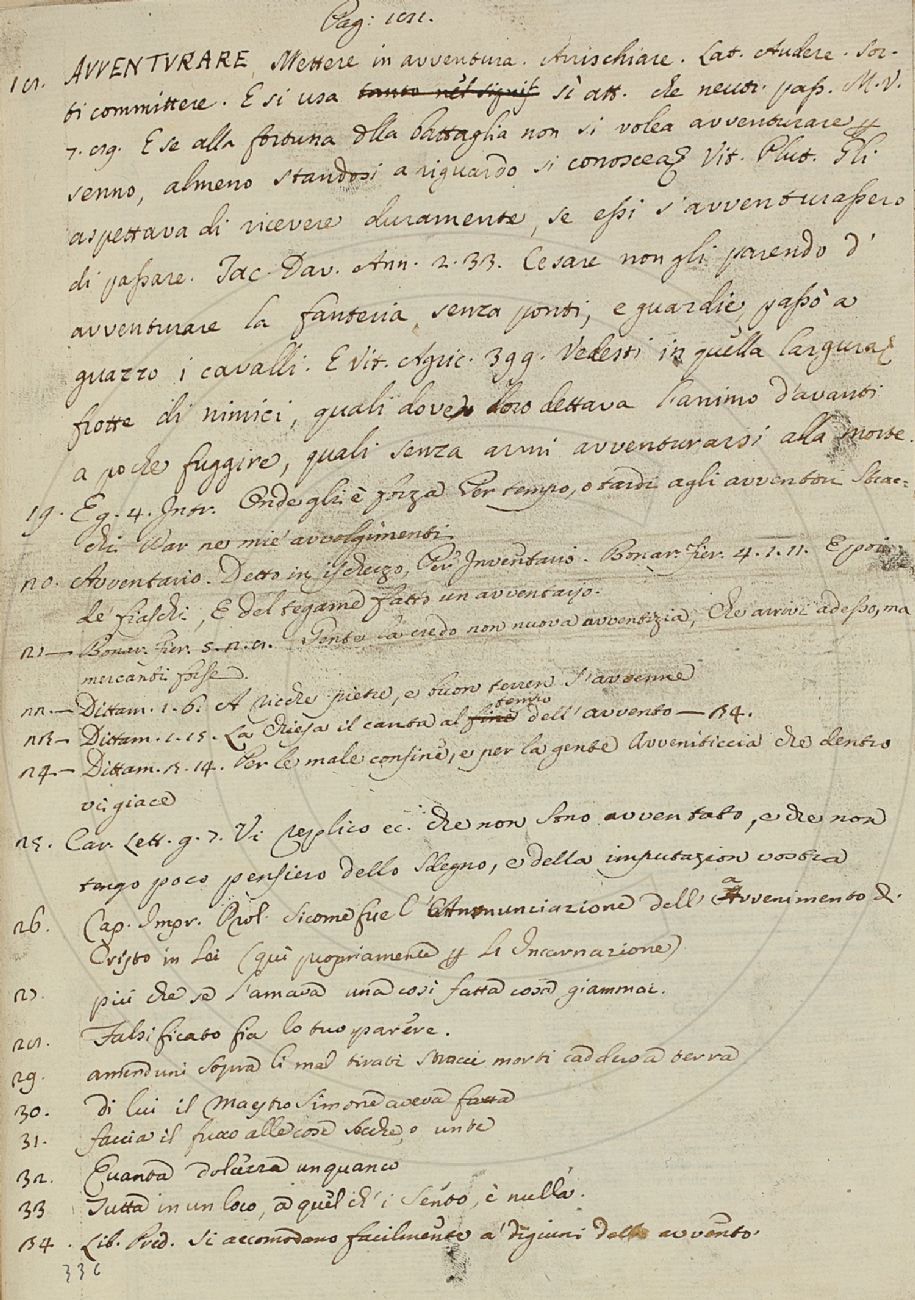 Pag: 181.
18. AVVENTVRARE Mettere in avventura. Arrischiare. Lat. Audere. Sor-
ti committere. E si usa tanto nel signif. sì att. che neutr. pass. M.V.
7. 89. E se alla fortuna dlla battaglia non si volea avventurare p
senno, almeno standosi a riguardo si conoscea Vit. Plut. Gli
aspettava di ricevere duramente, se essi s'avventurassero
di passare. Tac. Dav. Ann. 2.33. Cesare non gli parendo d'
avventurare la fanteria senza ponti, e guardie, passò a
guazzo i cavalli. E Vit. Agric. 399. Vedesti in quella largura
frotte di nimici, quali dove loro dettava l'animo d'avanti
a poche fuggire, quali senza armi avventurarsi alla morte.
19. Eg. 4. Intr. Onde gli è forza Per tempo, o tardi agli avventori Strac-
chi Dar ne' mie' avvolgimenti.
20. Avventario. Detto in ischerzo, Per Inventario. Bonar. Fier. 4. 2. 11. E poi
de' fiaschi, E del tegame fatto un avventario.
21 — Bonar. Fier. 5. 2. 8. Gente la credo non nuova avventizia, Che arrivi adesso, ma
mercanti forse.
22. — Dittam. 1. 6. A ricche pietre, e buon terren s'avvenne
23 — Dittam. 1. 15. La chiesa il canta al fine tempo dell'avvento — 34.
24 — Dittam. 2. 14. Per le male confine, e per la gente Avveniticcia che dentro
vi giace
25. Car. Lett. 9. 7. Vi replico ec. che non sono avventato, e che non
tengo poco pensiero dello sdegno, e della imputazion vostra
26. Cap. Impr. Prol. Sicome fue l'Annunciazione dell'avvenimento di
Cristo in Lei (qui propriamente p la Incarnazione)
27. più che se l'amava una così fatta cosa giammai.
28. Falsificato fia lo tuo parere.
29. amenduni sopra li mal tirati stracci morti cadder a terra
30. di lui il Maestro Simone aveva fatta
31. faccia il fuoco alle cose secche, o unte
32. Quanta dolcezza unquanco
33 Tutta in un loco, a quel ch'i sento, è nulla.
34. Lib. Pred. Si accomodano facilmente a' digiuni dello avvento.
336